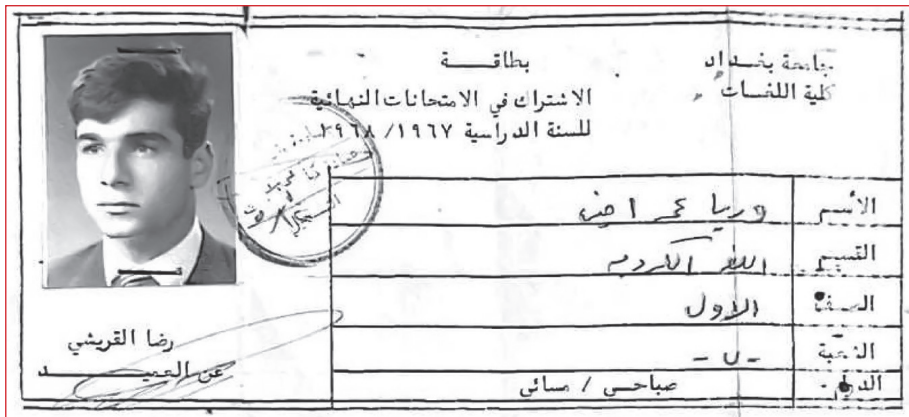 جامعة بغداد
كلية اللغات
بطاقة
الاشتراك في الامتحانات النهائية
للسنة الدراسية ١٩٦٧/ ١٩٦٨
الأسم وريا عمر امين
القسم اللغة الكردية
الصف الاول
الشعبة - ں -
الدوام صباحي / مسائي
رضا القريشي
عن العميد